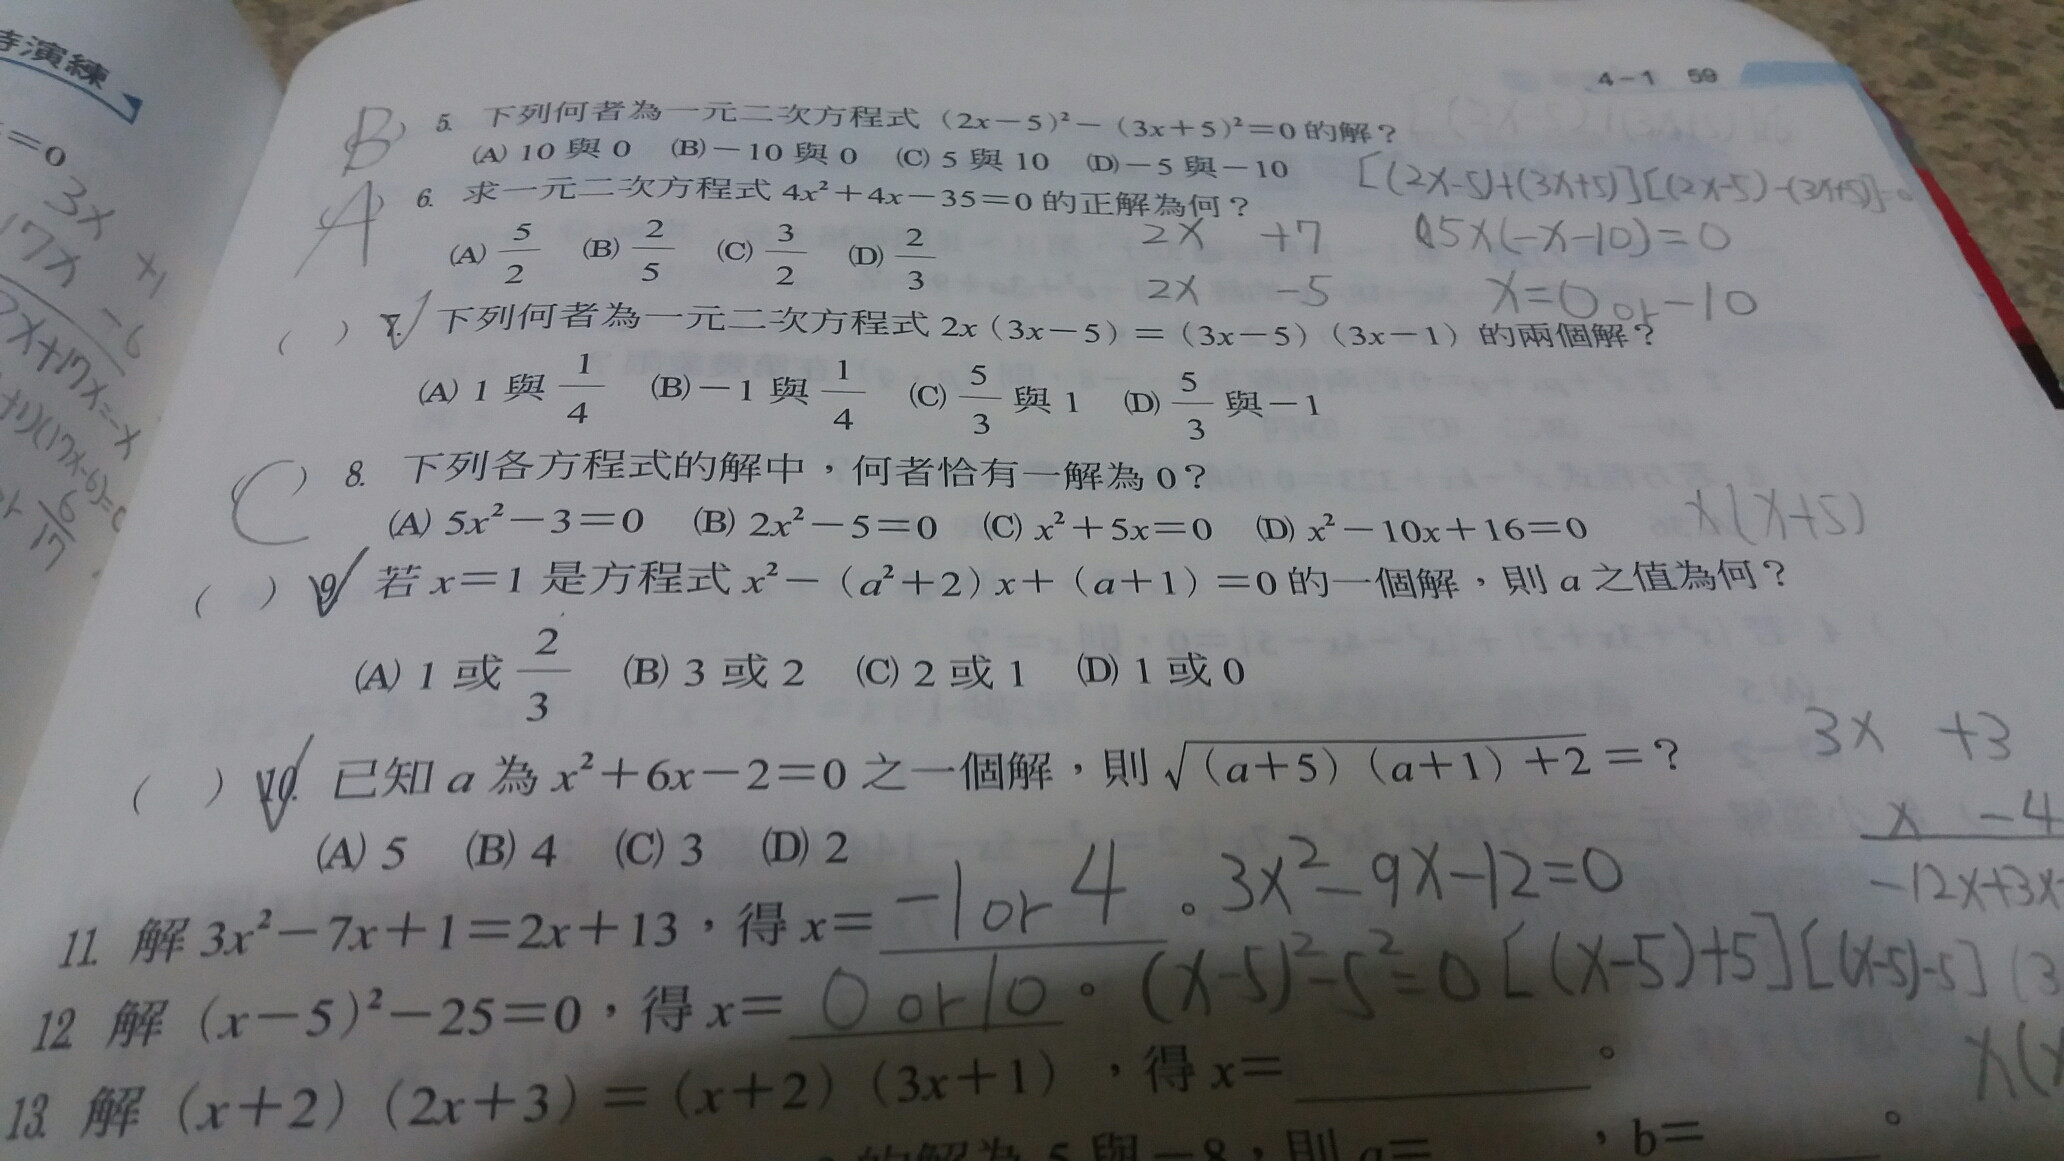 4-1 59
時演練
=0
3x +1
17x -6
B ) 5. 下列何者為一元二次方程式（2x－5）²－（3x＋5）²＝0 的解？
(A) 10 與 0 (B)－10 與 0 (C) 5 與 10 (D)－5 與－10
[(2x-5)+(3x+5)][(2x-5)-(3x+5)]=0
5x(-x-10)=0
x=0 or -10
A ) 6. 求一元二次方程式 4x²＋4x－35＝0 的正解為何？
(A) 5/2 (B) 2/5 (C) 3/2 (D) 2/3
2x +7
2x -5
( ) 7. 下列何者為一元二次方程式 2x（3x－5）＝（3x－5）（3x－1）的兩個解？
(A) 1 與 1/4 (B)－1 與 1/4 (C) 5/3 與 1 (D) 5/3 與－1
C ) 8. 下列各方程式的解中，何者恰有一解為 0？
(A) 5x²－3＝0 (B) 2x²－5＝0 (C) x²＋5x＝0 (D) x²－10x＋16＝0
x(x+5)
( ) 9. 若 x＝1 是方程式 x²－（a²＋2）x＋（a＋1）＝0 的一個解，則 a 之值為何？
(A) 1 或 2/3 (B) 3 或 2 (C) 2 或 1 (D) 1 或 0
( ) 10. 已知 a 為 x²＋6x－2＝0 之一個解，則 √（a＋5）（a＋1）＋2＝？
(A) 5 (B) 4 (C) 3 (D) 2
3x +3
x -4
-12x+3x
11. 解 3x²－7x＋1＝2x＋13，得 x＝-1 or 4。3x²-9x-12=0
12. 解（x－5）²－25＝0，得 x＝0 or 10。(x-5)²-5²=0 [(x-5)+5][(x-5)-5]
13. 解（x＋2）（2x＋3）＝（x＋2）（3x＋1），得 x＝。
的解為 5 與－8，則 a＝，b＝。